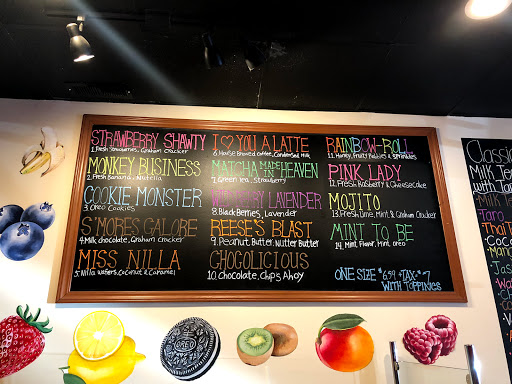 STRAWBERRY SHAWTY
1. Fresh Strawberries, Graham Cracker
MONKEY BUSINESS
2. Fresh Banana, Nutella
COOKIE MONSTER
3. Oreo Cookies
S'MORES GALORE
4. Milk chocolate, Graham Cracker
MISS NILLA
5. Nilla Wafers, Coconut & Caramel
I ♡ YOU A LATTE
6. House Brewed Coffee, Condensed Milk
MATCHA MADE IN HEAVEN
7. Green Tea, Strawberry
LAVENDER
8. Black Berries, Lavender
REESE'S BLAST
9. Peanut Butter, Nutter Butter
CHOCOLICIOUS
10. Chocolate, Chips Ahoy
RAINBOW-ROLL
11. Honey, Fruity Pebbles & Sprinkles
PINK LADY
12. Fresh Rasberry & Cheesecake
MOJITO
13. Fresh Lime, Mint & Graham Cracker
MINT TO BE
14. Mint Flavor, Mint Oreo
ONE SIZE $6.59 + TAX = $7
WITH TOPPINGS
Classic
Milk Tea
with
Taro
Thai
OREO